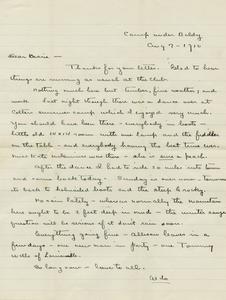 Camp under Baldy
Aug 7 - 1910
Dear Bessie -
Thanks for your letter. Glad to hear
things are running as usual at the Club.
Nothing much here but timber, fine weather, and
work. Last night though there was a dance over at
summer camp which I enjoyed very much.
You should have been there - everybody in boots -
little old 10x14 room with one lamp and the fiddler
on the table - and everybody having the best time ever.
was there - she is sure a peach.
After the dance I had to ride 20 miles into town
and come back today. Sunday is over now - tomorrow
its back to hobnailed boots and the steep &
No rain lately - where normally the mountain
here ought to be 2 feet deep in mud - the water
question will be serious if it dont rain soon.
Everything going fine - Allison leaves in a
few days - one new man in party - one Tommy
Wells of Louisville.
So long now - love to all.